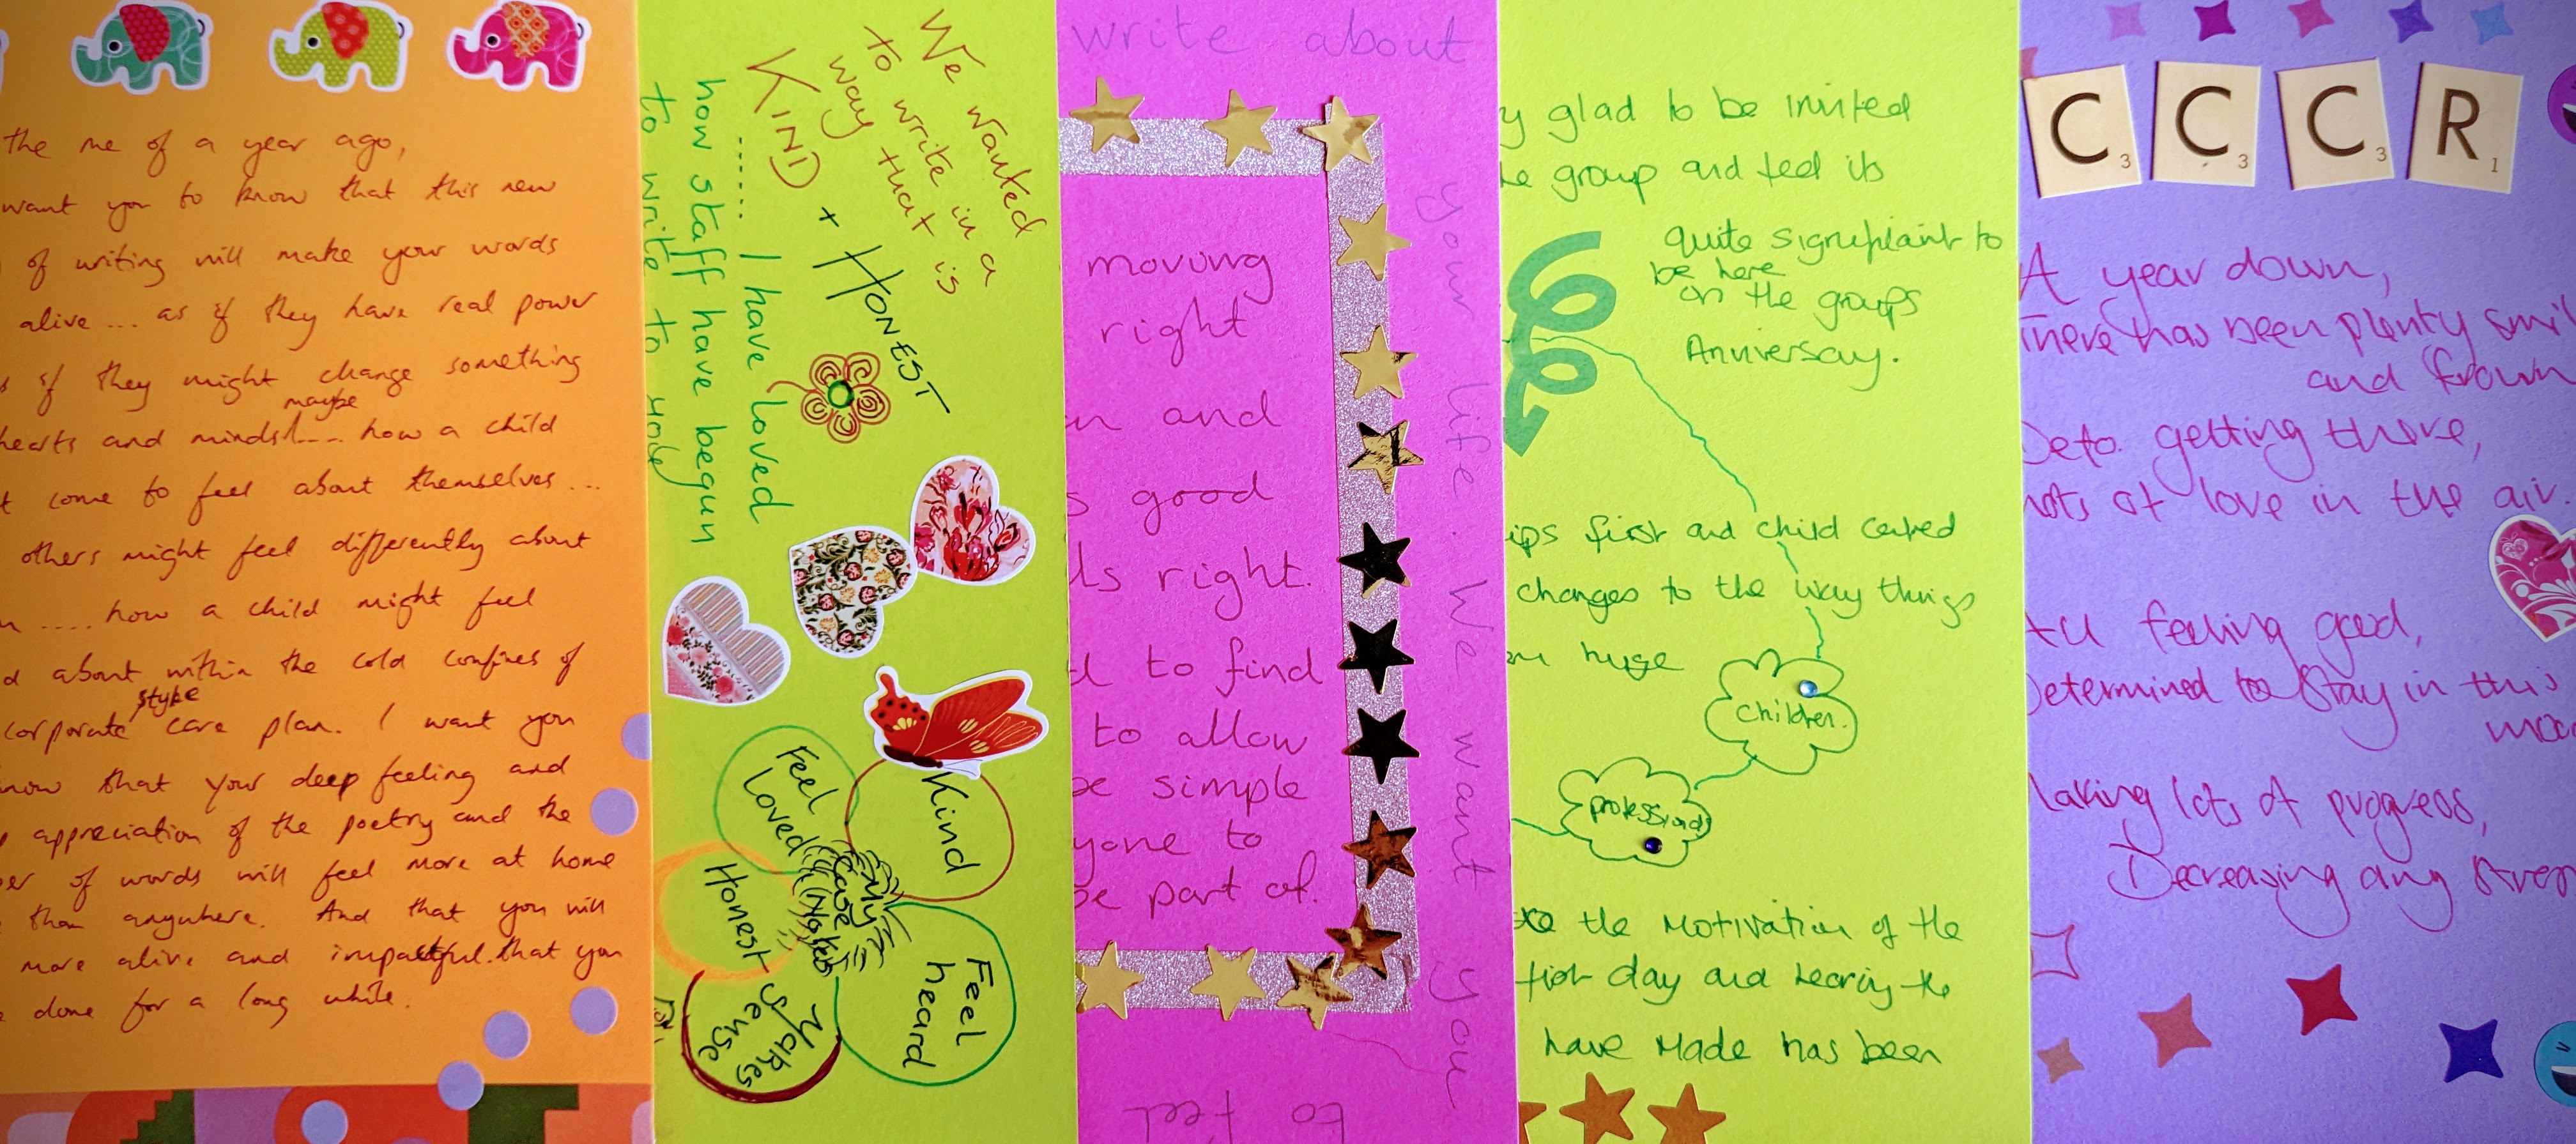 the me of a year ago,
want you to know that this new
of writing will make your words
alive ... as if they have real power
if they might change something
maybe
hearts and minds .... how a child
come to feel about themselves ...
others might feel differently about
.... how a child might feel
about within the cold confines of
style
corporate care plan. I want you
know that your deep feeling and
appreciation of the poetry and the
of words will feel more at home
than anywhere. And that you will
more alive and impactful. that you
done for a long while.
We wanted
to write in a
way that is
KIND + HONEST
...... I have loved
how staff have begun
to write to you
Feel
Loved
Kind
My
Case
Notes
Honest
Feel
heard
Makes
sense
write about
your life. We want you
to feel
moving
right
and
good
right.
to find
to allow
be simple
to
be part of.
glad to be invited
group and feel its
quite signifiaint to
be here
on the groups
Anniversay.
first and child centred
changes to the way things
huge
Children.
professionals
to the motivation of the
first day and hearing the
have made has been
C3 C3 C3 R1
A year down,
There has been plenty
and frown
getting there,
lots of love in the air.
feeling good,
Determined to stay in this
Making lots of progress,
Decreasing any